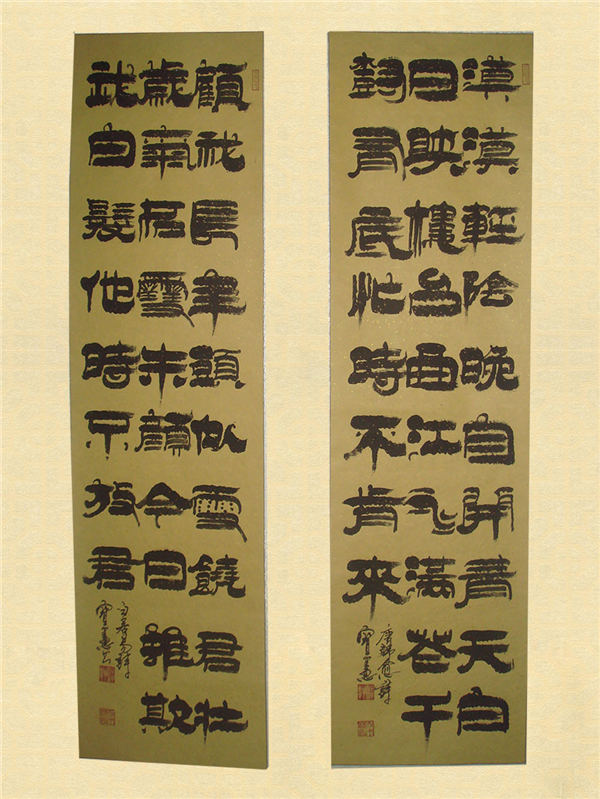 漠漠輕陰晚自開青天白
日映樓台曲江水滿花千
樹有底忙時不肯來
唐韓愈詩
顧我長年頭似雪饒君壯
歲氣如雲朱顏今日雖欺
我白髮他時不放君
白居易詩